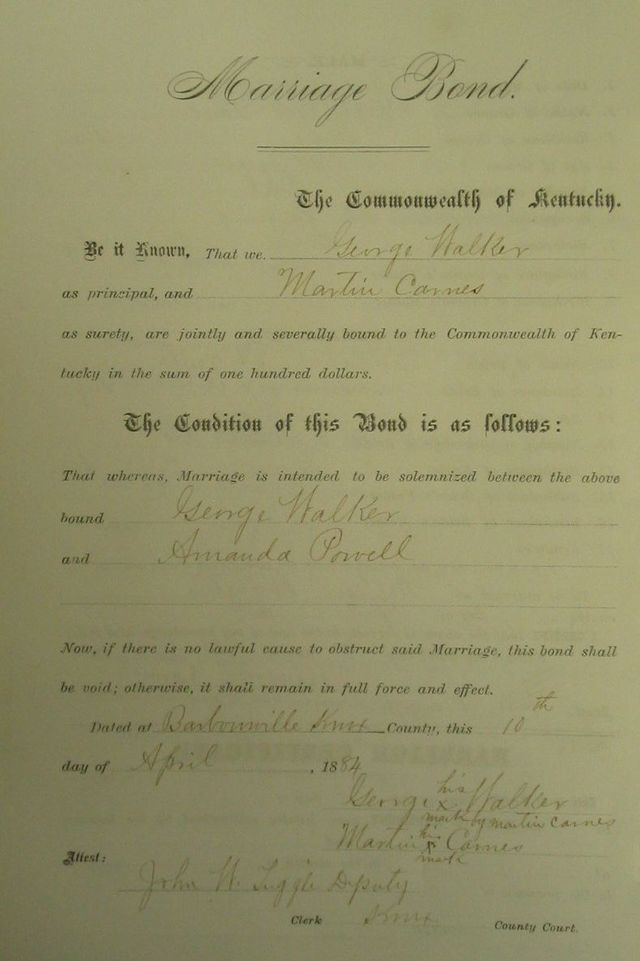 Marriage Bond.
The Commonwealth of Kentucky.
Be it Known, That we George Walker
as principal, and Martin Carnes
as surety, are jointly and severally bound to the Commonwealth of Ken-
tucky in the sum of one hundred dollars.
The Condition of this Bond is as follows:
That whereas, Marriage is intended to be solemnized between the above
bound George Walker
and Amanda Powell
Now, if there is no lawful cause to obstruct said Marriage, this bond shall
be void; otherwise, it shall remain in full force and effect.
Dated at Barbourville Knox County, this 10th
day of April, 1884
George his x Walker
mark by martin carnes
Martin his x Carnes
mark
Attest:
John H. Deputy
Clerk Knox County Court.